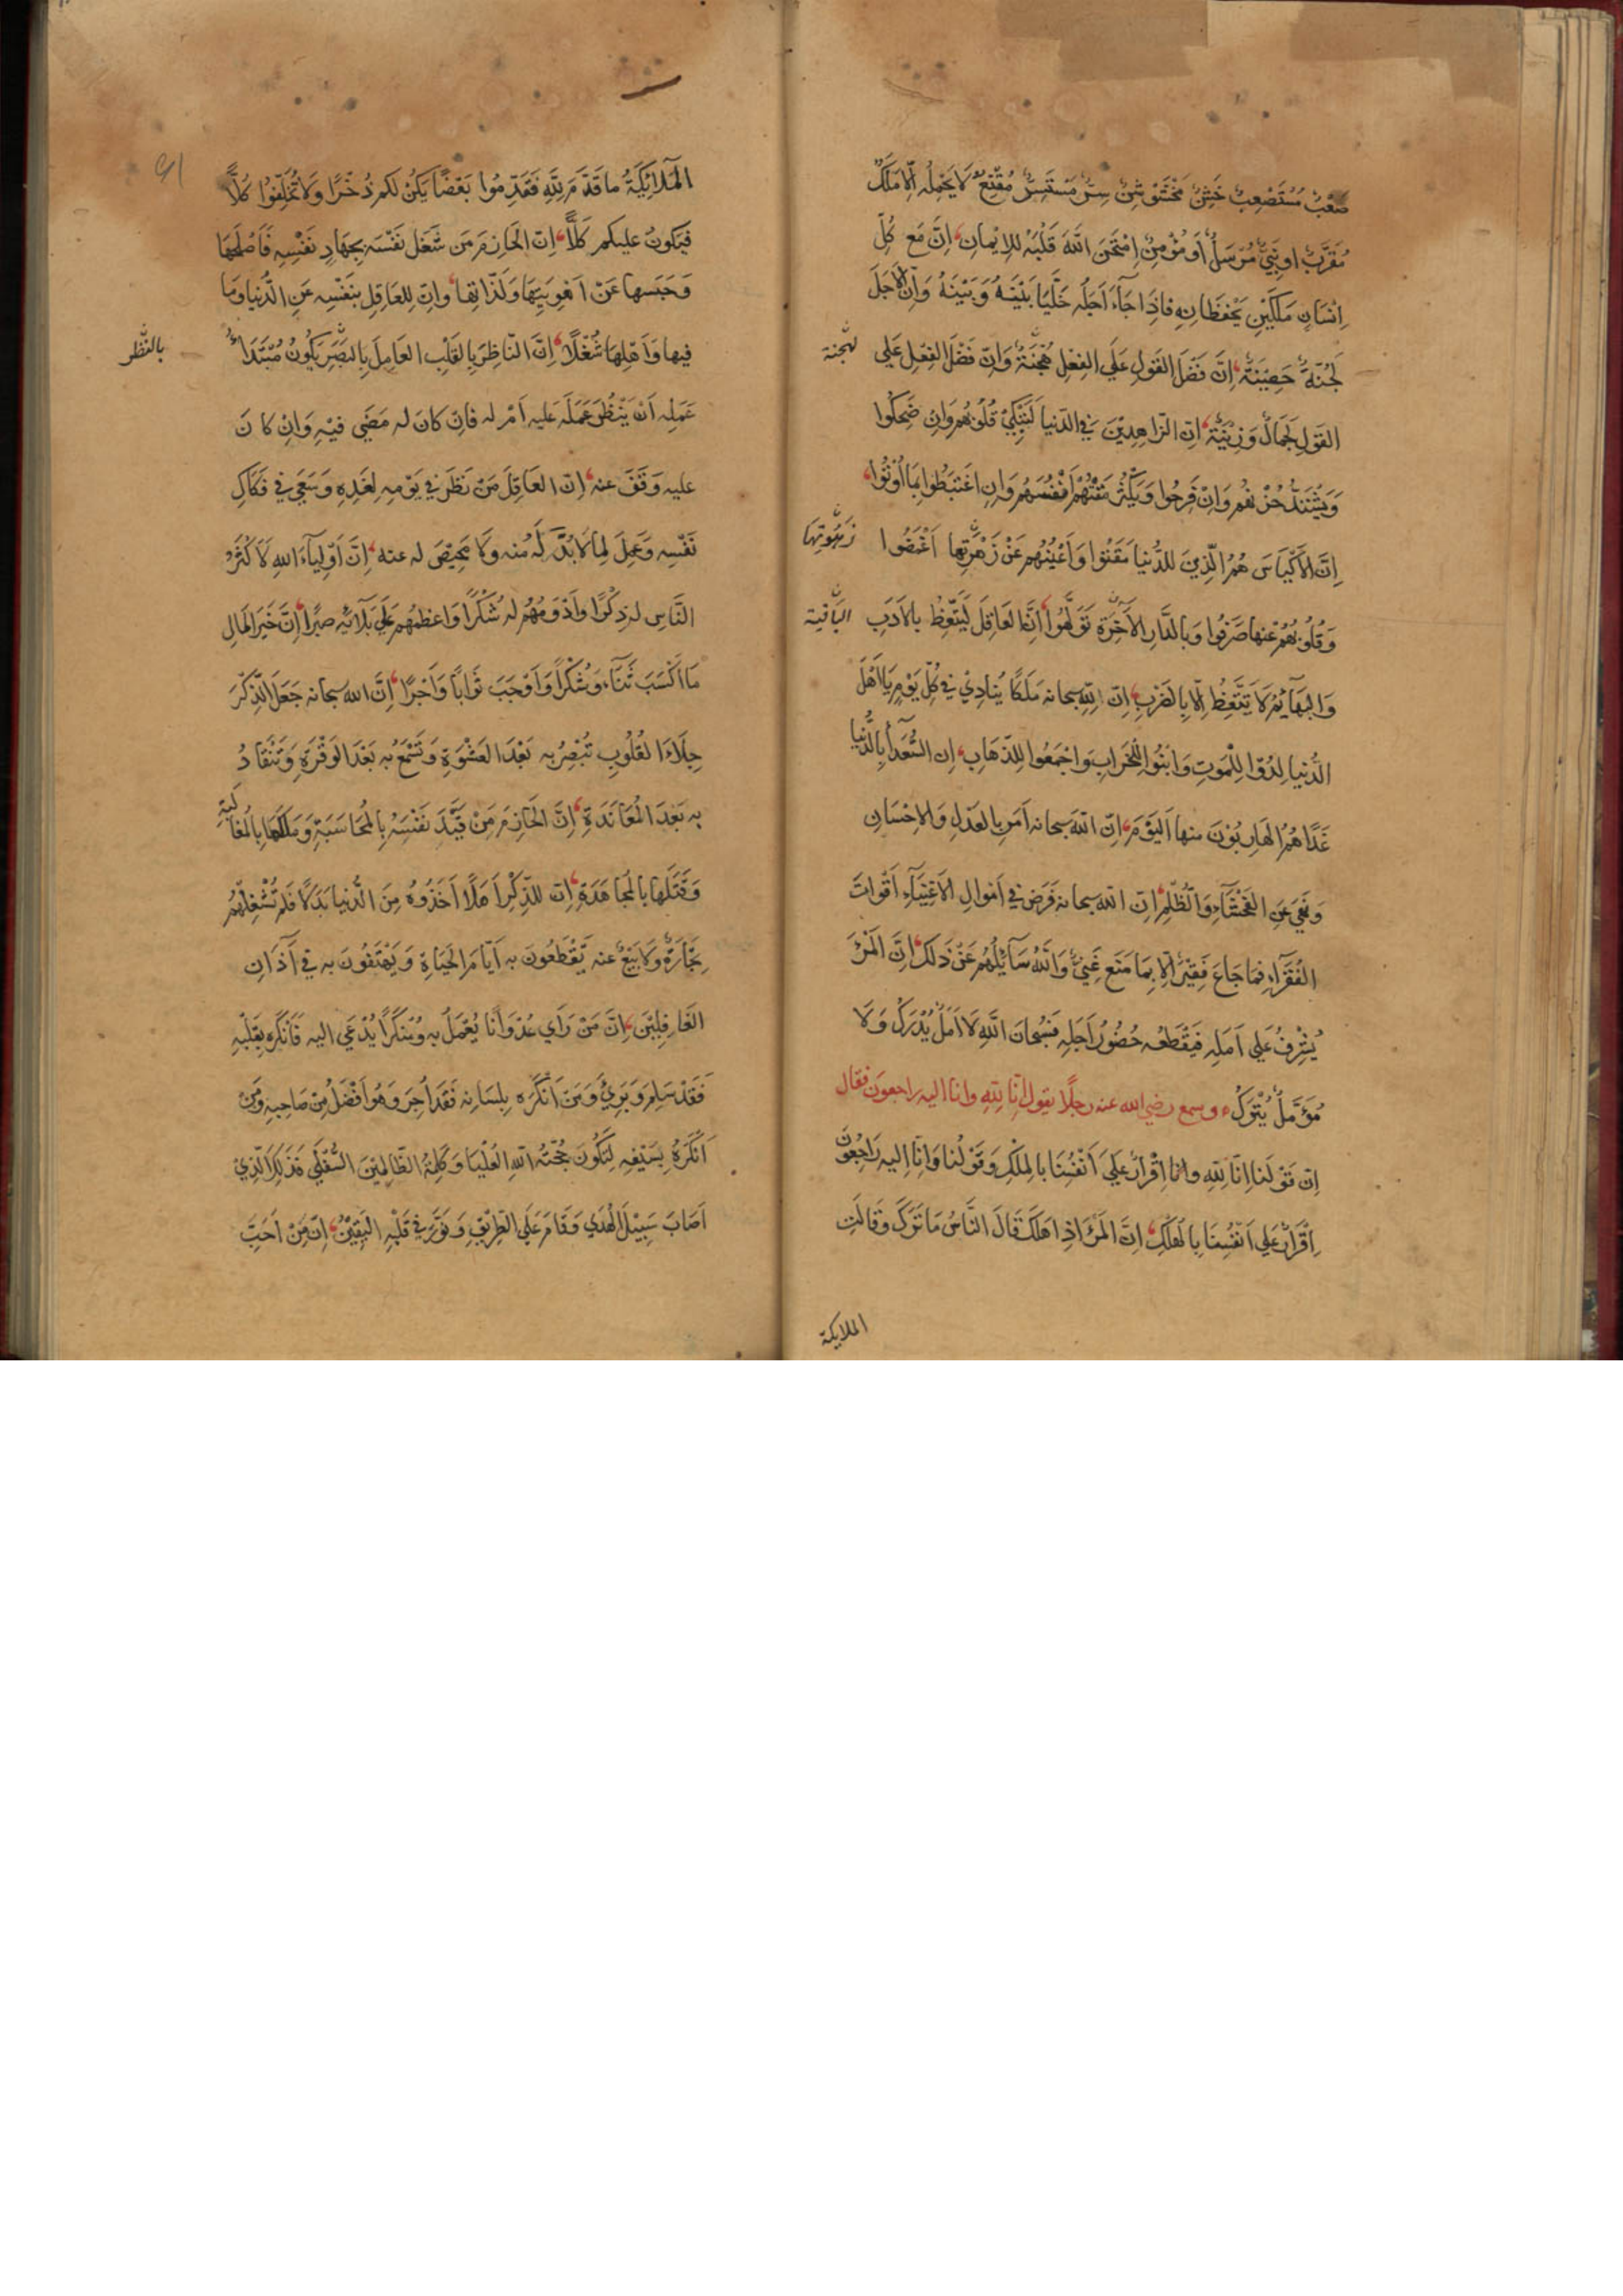 صَعْبٌ مُسْتَصْعِبٌ خَشِنٌ مُخْشَوْشِنٌ سِرٌّ مُسْتَسِرٌّ مُقَنَّعٌ لَا يَحْمِلُه اِلَّا مَلَكٌ
مُقَرَّبٌ او نَبِيٌّ مُرْسَلٌ أَوْ مُؤْمِنٌ اِمْتَحَنَ اللَّهُ قَلْبَهُ لِلاِيْمَانِ، اِنَّ مَع كُلِّ
اِنْسَانٍ مَلَكَيْنِ يَحْفَظَانِهِ فَاِذَا جَآءَ اَجَلُه خَلَّيَا بَيْنَهُ وَبَيْنَهُ وَاِنَّ الْاَجَلَ
لَجُنَّةٌ حَصِيْنَةٌ، اِنَّ فَضْلَ القَوْلِ عَلَي الفِعْلِ هُجْنَةٌ وَاِنَّ فَضْلَ الفِعْلِ عَلي
لهجنة
القَوْلِ لَجَمَالٌ وَزِيْنَةٌ، اِنّ الزّاهِدِيْنَ فِي الدّنيا لَتَبْكِيْ قُلُوْبُهُم وَاِنْ ضَحِكُوا
وَيَشْتَدُّ حُزْنُهُم وَاِنْ فَرِحُوا وَيَكْثُرُ مَقْتُهُمْ اَنْفُسَهُم وَاِنِ اغْتَبَطُوا بِمَا اُوْتُوا،
اِنَّ الاَكْيَاسَ هُمُ الَّذِينَ لِلدُّنيا مَقَتُوا وَاَعْيُنَهُم عَنْ زَهْرَتِها اَغْمَضُوا
زَهْوَتِهَا
وَقُلُوْبَهُمْ عَنها صَرَفُوا وَبِالدَّارِ الآخِرَةِ تَوَلَّهُوا، اِنَّ العَاقِلَ لَيَتَّعِظُ بالاَدَبِ
البَاقية
وَالبَهَآئِمُ لَا يَتَّعِظُ اِلَّا بِالضَرْبِ، اِنّ لِلّهِ سبحانه مَلَكًا يُنادِيْ في كُلِّ يَوْمٍ يَا اَهْلَ
الدُّنيا لِدُوْا لِلْمَوتِ وَابْنُوا لِلْخَرَابِ وَاجْمَعُوا لِلذّهَابِ، اِن السُّعَدَآءَ بِالدُّنْيَا
غَدًا هُمُ الهَارِبُوْنَ منها اَليَوْمَ، اِنّ اللّهَ سبحانه اَمَرَ بِالعَدْلِ وَالاِحْسَانِ
وَنَهَي عَنِ الفَحْشَآءِ وَالظُّلْمِ، اِنّ اللّه سبحانه فَرَضَ في اَمْوالِ الاَغْنِيَآءِ اَقْوَاتَ
الفُقَرَآءِ فما جَاعَ فَقِيْرٌ اِلَّا بِمَا مَنَعَ غَنِيٌّ وَاللّهُ سَآئِلُهُم عَنْ ذلك، اِنَّ المَرْءَ
يُشْرِفُ عَلي اَمَلِه فَيَقْطَعُه حُضُوْرُ اَجَلِه فَسُبْحَانَ اللّهِ لَا اَمَلٌ يُدْرَكُ وَلَا
مُؤَمَّلٌ يُتْرَكُ، وسمع رضي الله عنه رجلًا يقول اِنّا للّهِ وانا اليه راجعون فقال
اِنّ قَوْلَنا اِنّا للّهِ وانا اِقْرَارٌ عَلَي اَنْفُسِنَا بِالمِلْكِ وَقَوْلُنا وَاِنّا اليه رَاجِعُوْنَ
اِقْرَارٌ عَلي اَنْفُسِنَا بِالهُلْكِ، اِنَّ المَرْءَ اِذا هَلَكَ قَالَ النَّاسُ مَا تَرَكَ وَقَالَتِ
الملايكة
المَلَائِكَةُ ما قَدَّمَ لِلّهِ فَقَدِّمُوا بَعْضًا يَكُنْ لكم ذُخْرًا وَلَا تُخَلِّفُوا كُلًّا
فَيَكُونُ عليكم كَلًّا، اِنّ الحَازِمَ مَن شَغَلَ نَفْسَه بِجِهَادِ نَفْسِه فَاَصْلَحَهَا
وَحَبَسها عَنْ اَهْوِيَتِهَا وَلَذَّاتِها، وَاِنّ لِلعَاقِلِ بنَفْسِه عَنِ الدُّنيا وَمَا
فيها وَاَهْلِهَا شُغْلًا، اِنَّ النّاظِرَ بِالقَلْبِ العَامِلَ بِالبَصَرِ يَكُونُ مُبْتَدَأُ
بالنظر
عَمَلِه اَنْ يَنْظُرَ عَمَلَه عَلَيه اَمْ له فَاِنْ كَانَ لَه مَضَي فيْهِ وَاِنْ كَانَ
عليه وَقَفَ عنه، اِنّ العَاقِلَ مَنْ نَظَرَ في يَوْمِه لِغَدِه وَسَعَي في فَكَاكِ
نَفْسِه وَعَمِلَ لِمَا لَا بُدَّ لَهُ منه وَلَا مَحِيْصَ له عنه، اِنَّ اَوْلِيآءَ اللهِ لَاَكْثَرُ
النّاسِ له ذِكْرًا وَاَدْوَمُهُم له شُكْرًا وَاعظَمُهُم عَلَي بَلَآئِه صَبْرًا، اِنَّ خَيْرَ المَالِ
مَا اَكْسَبَ ثَنَآءً وَشُكْرًا وَاَوْجَبَ ثَوَابًا وَاَجْرًا، اِنَّ الله سبحانه جَعَلَ الذِّكْرَ
جِلَآءَ القُلُوبِ تُبْصِرُ به بَعْدَ العَشْوَةِ وَتَسْمَعُ به بَعْدَ الوَقْرَةِ وَتَنْقَادُ
به بَعْدَ المُعَانَدَةِ، اِنَّ الحَازِمَ مَنْ قَيَّدَ نَفْسَهُ بِالمُحَاسَبَةِ وَمَلَكَهَا بِالمُغَالَبَةِ
وَقَتَلَها بِالمُجَاهَدَةِ، اِنّ لِلذِّكْرِ اَهْلًا اَخَذُوْهُ مِنَ الدُّنيا بَدَلًا فَلَم تُشْغِلْهُمْ
تِجَارَةٌ وَلَا بَيْعٌ عنه يَقْطَعُونَ به اَيّامَ الحَيَاةِ وَيَهْتِفُونَ به في آذَانِ
الغَافِلِيْنَ، اِنَّ مَنْ رَاَي عُدْوَانًا يُعْمَلُ به وَمُنْكَرًا يُدْعَي اليه فَاَنْكَرَه بِقَلْبِه
فَقَدْ سَلِمَ وَبَرِيَ وَمَنْ اَنْكَرَه بِلِسَانِه فَقَدْ اُجِرَ وَهُوَ اَفْضَلُ مِنْ صَاحِبِه وَمَنْ
اَنْكَرَهُ بِسَيْفِه لِتَكُونَ حُجَّةُ اللهِ العُلْيَا وَكَلِمَةُ الظّالِمِيْنَ السُّفْلَي فَذَلِكَ الَّذِيْ
اَصَابَ سَبِيْلَ الهُدَي وَقَامَ عَلَي الطّرِيْقِ وَنَوَّرَ في قَلْبِه اليَقِيْنُ، اِنّ مِنْ اَحَبِّ